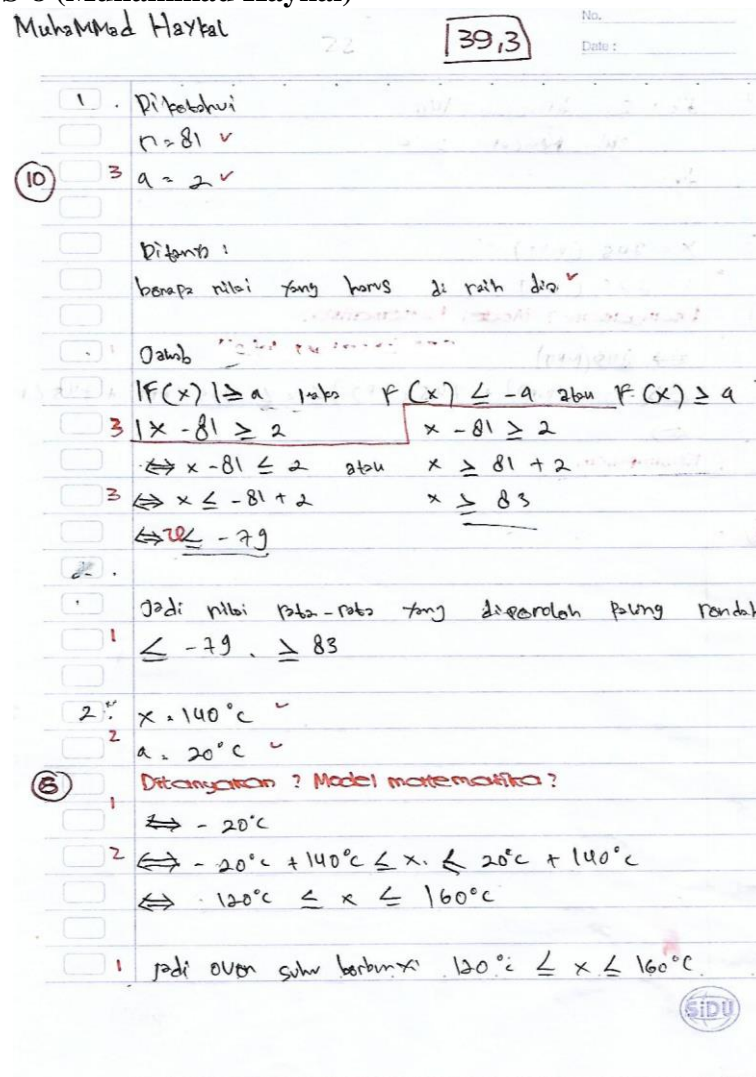 S-8 (Muhammad Haykal)
MuhaMMad Haykal
22
39,3
No.
Date :
1. Diketahui
n = 81
10 3 a = 2
Ditanya :
berapa nilai yang harus di raih dia.
Jawab
|F(x)| ≥ a maka F(x) ≤ -a atau F(x) ≥ a
3 |x - 81 ≥ 2 x - 81 ≥ 2
⇔ x - 81 ≤ 2 atau x ≥ 81 + 2
3 ⇔ x ≤ -81 + 2 x ≥ 83
⇔ x ≤ -79
Jadi nilai rata-rata yang diperoleh paling rendah
1 ≤ -79 . ≥ 83
2. x = 140°C
2 a = 20°C
6 Ditanyakan ? Model matematika?
1 ⇔ - 20°C
2 ⇔ - 20°C + 140°C ≤ x. ≤ 20°C + 140°C
⇔ 120°C ≤ x ≤ 160°C
1 jadi oven suhu berbunyi 120°C ≤ x ≤ 160°C.
SiDU